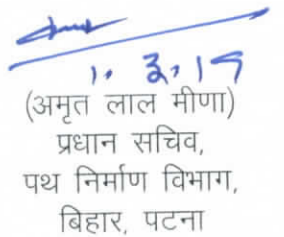 1. 3. 19
(अमृत लाल मीणा)
प्रधान सचिव,
पथ निर्माण विभाग,
बिहार, पटना